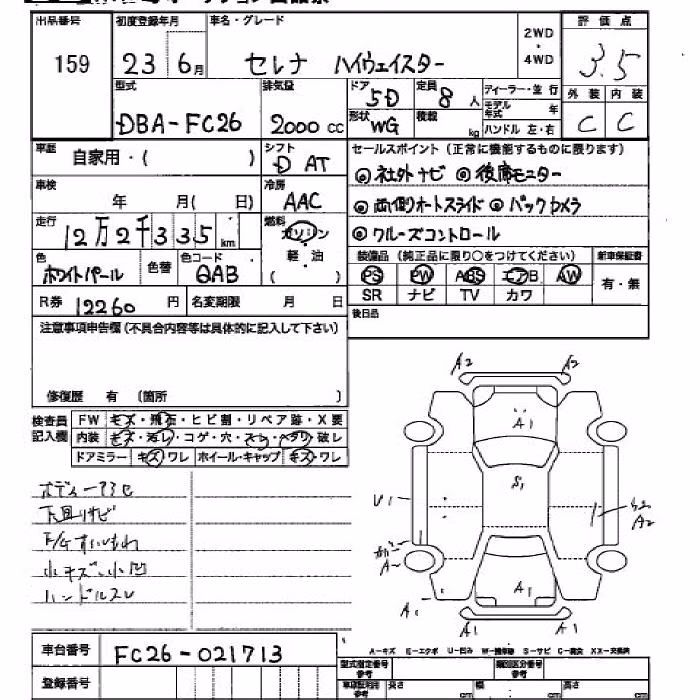 出品番号 初度登録年月 車名・グレード 評価点
159 23 6月 セレナ ハイウェイスター 2WD・4WD 3.5
型式 排気量 ドア 5D 定員 8人 ディーラー・並行 外装 内装
DBA-FC26 2000cc 形状 WG 積載 kg モデル年式 年 ハンドル 左・右 C C
車歴 自家用・( ) シフト D AT セールスポイント(正常に機能するものに限ります)
◎社外ナビ ◎後席モニター
車検 年 月( 日) 冷房 AAC
◎両側オートスライド ◎バックカメラ
走行 12万2千335km 燃料 ガソリン 軽油 ( )
◎クルーズコントロール
色 ホワイトパール 色替 色コード QAB
装備品(純正品に限り○をつけてください) 新車保証書
PS PW ABS エアB AW 有・無
SR ナビ TV カワ
R券 12260円 名変期限 月 日
後日品
注意事項申告欄(不具合内容等は具体的に記入して下さい)
修復歴 有 (箇所 )
検査員記入欄 FW キズ・飛石・ヒビ割・リペア跡・X要
内装 キズ・汚レ・コゲ・穴・スレ・ヘタリ・破レ
ドアミラー キズ・ワレ ホイール・キャップ キズ・ワレ
下回りサビ
小キズ・小凹
ハンドルスレ
A2 A2
A1
S1
U1
A2
A1
A1 A1
A-キズ E-エクボ U-凹み W-補修跡 S-サビ C-腐食 XX-交換済
車台番号 FC26-021713
登録番号
型式指定番号 参考 類別区分番号 参考
長さ cm 幅 cm 高さ cm